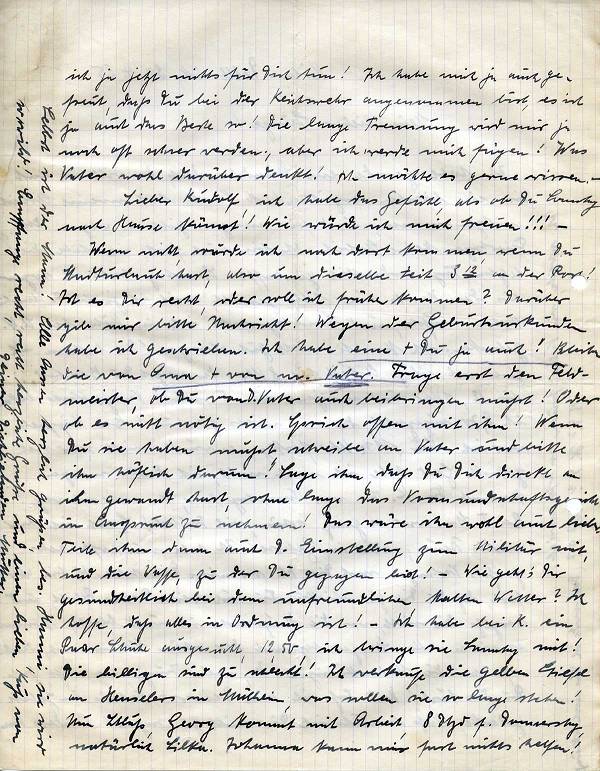 ich ja jetzt nichts für Dich tun! Ich habe mich ja auch ge-
freut, daß Du bei der Reichswehr angenommen bist, es ist
ja auch das Beste so! Die lange Trennung wird mir ja
noch oft schwer werden, aber ich werde mich fügen! Was
Vater wohl darüber denkt! Ich möchte es gerne wissen. –
Lieber Rudolf ich habe das Gefühl, als ob Du Sonntag
nach Hause kämst! Wie würde ich mich freuen!!! –
Wenn nicht, würde ich noch dort kommen, wenn Du
Stadturlaub hast, also um dieselbe Zeit 3 12 an der Post!
Ist es Dir recht, oder soll ich früher kommen? Darüber
gib mir bitte Nachricht! Wegen der Geburtsurkunden
habe ich geschrieben. Ich habe eine + Du ja auch! Bleiben
die von Oma + von m. Vater. Frage erst den Feld-
meister, ob Du von D. Vater auch beibringen mußt! Oder
ob es nicht nötig ist. Sprich offen mit ihm! Wenn
Du sie haben mußt schreibe an Vater und bitte
ihn höflich darum! Sage ihm, daß Du Dich direkt an
ihn gewandt hast, ohne lange das Vormundschaftsgericht
in Anspruch zu nehmen! Das wäre ihm wohl auch lieber
Teile ihm dann auch d. Einstellung zum Militär mit,
und die Waffe, zu der Du gezogen bist! – Wie geht's Dir
gesundheitlich bei dem unfreundlichen kalten Wetter? Ich
hoffe, daß alles in Ordnung ist! – Ich habe bei K. ein
Paar Schuhe ausgesucht, 12,50, ich bringe sie Sonntag mit!
Die billigen sind zu schlecht! Ich verkaufe die gelben Stiefel
an Henselers in Mülheim, was sollen sie so lange stehen!
Nun Schluß, Georg kommt mit Arbeit 8 Dtzd f. Donnerstag,
natürlich Lilka. Johanna kann mir fast nichts helfen!
Alle lassen herzlich grüßen bes. Hanni sie wird
Empfange recht recht herzliche Grüße und einen lieben Kuß von
Deiner Dich liebenden Mutter.